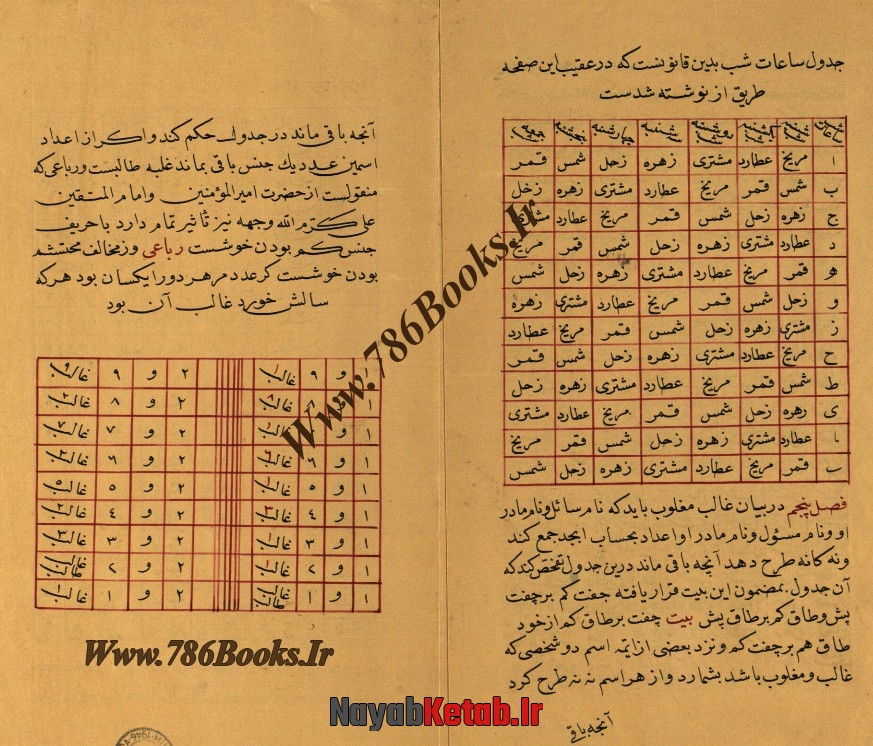 جدول ساعات شب بدین قانونست که در عقیب این صفحه
طریق از نوشته شدست
ا مریخ عطارد مشتری زهره زحل شمس قمر
ب شمس قمر مریخ عطارد مشتری زهره زحل
ج زهره زحل شمس قمر مریخ عطارد مشتری
د عطارد مشتری زهره زحل شمس قمر مریخ
ه قمر مریخ عطارد مشتری زهره زحل شمس
و زحل شمس قمر مریخ عطارد مشتری زهره
ز مشتری زهره زحل شمس قمر مریخ عطارد
ح مریخ عطارد مشتری زهره زحل شمس قمر
ط شمس قمر مریخ عطارد مشتری زهره زحل
ی زهره زحل شمس قمر مریخ عطارد مشتری
یا عطارد مشتری زهره زحل شمس قمر مریخ
یب قمر مریخ عطارد مشتری زهره زحل شمس
فصل پنجم در بیان غالب مغلوب باید که نام سائل ونام مادر
او ونام مسئول ونام مادر او اعداد بحساب ابجد جمع کند
ونه کانه طرح دهد آنچه باقی ماند درین جدول تفحص کند که
آن جدول بمضمون این بیت قرار یافته جفت کم بر جفت
پش وطاق کم بر طاق پش بیت جفت بر طاق کم از خود
طاق هم بر جفت کم ونزد بعضی از ایمه اسم دو شخصی که
غالب ومغلوب باشد بشمارد واز هر اسم نه نه طرح کرد
آنجه باقی
آنجه باقی ماند در جدول حکم کند واکر از اعداد
اسمین عدد یك جنس باقی بماند غلبه طالبست ورباعی که
منقولست از حضرت امیرالمؤمنین وامام المتقین
علی کرم الله وجهه نیز تأثیر تمام دارد با حریف
جنس کم بودن خوشست رباعی وز مخالف محتشم
بودن خوشست کر عدد مر هر دو را یکسان بود هر که
سالش خورد غالب آن بود
ا و ٩ غالب ١ ٢ و ٩ غالب ٩
ا و ٨ غالب ٨ ٢ و ٨ غالب ٢
ا و ٧ غالب ١ ٢ و ٧ غالب ٧
ا و ٦ غالب ٦ ٢ و ٦ غالب ٢
ا و ٥ غالب ١ ٢ و ٥ غالب ٥
ا و ٤ غالب ٢ و ٤ غالب ٢
ا و ٣ غالب ١ ٢ و ٣ غالب ٣
ا و ٢ غالب ٢ و ٢ غالب طالب
ا و ١ غالب طالب ٢ و ١ غالب ١
Www.786Books.Ir
Www.786Books.Ir
NayabKetab.Ir